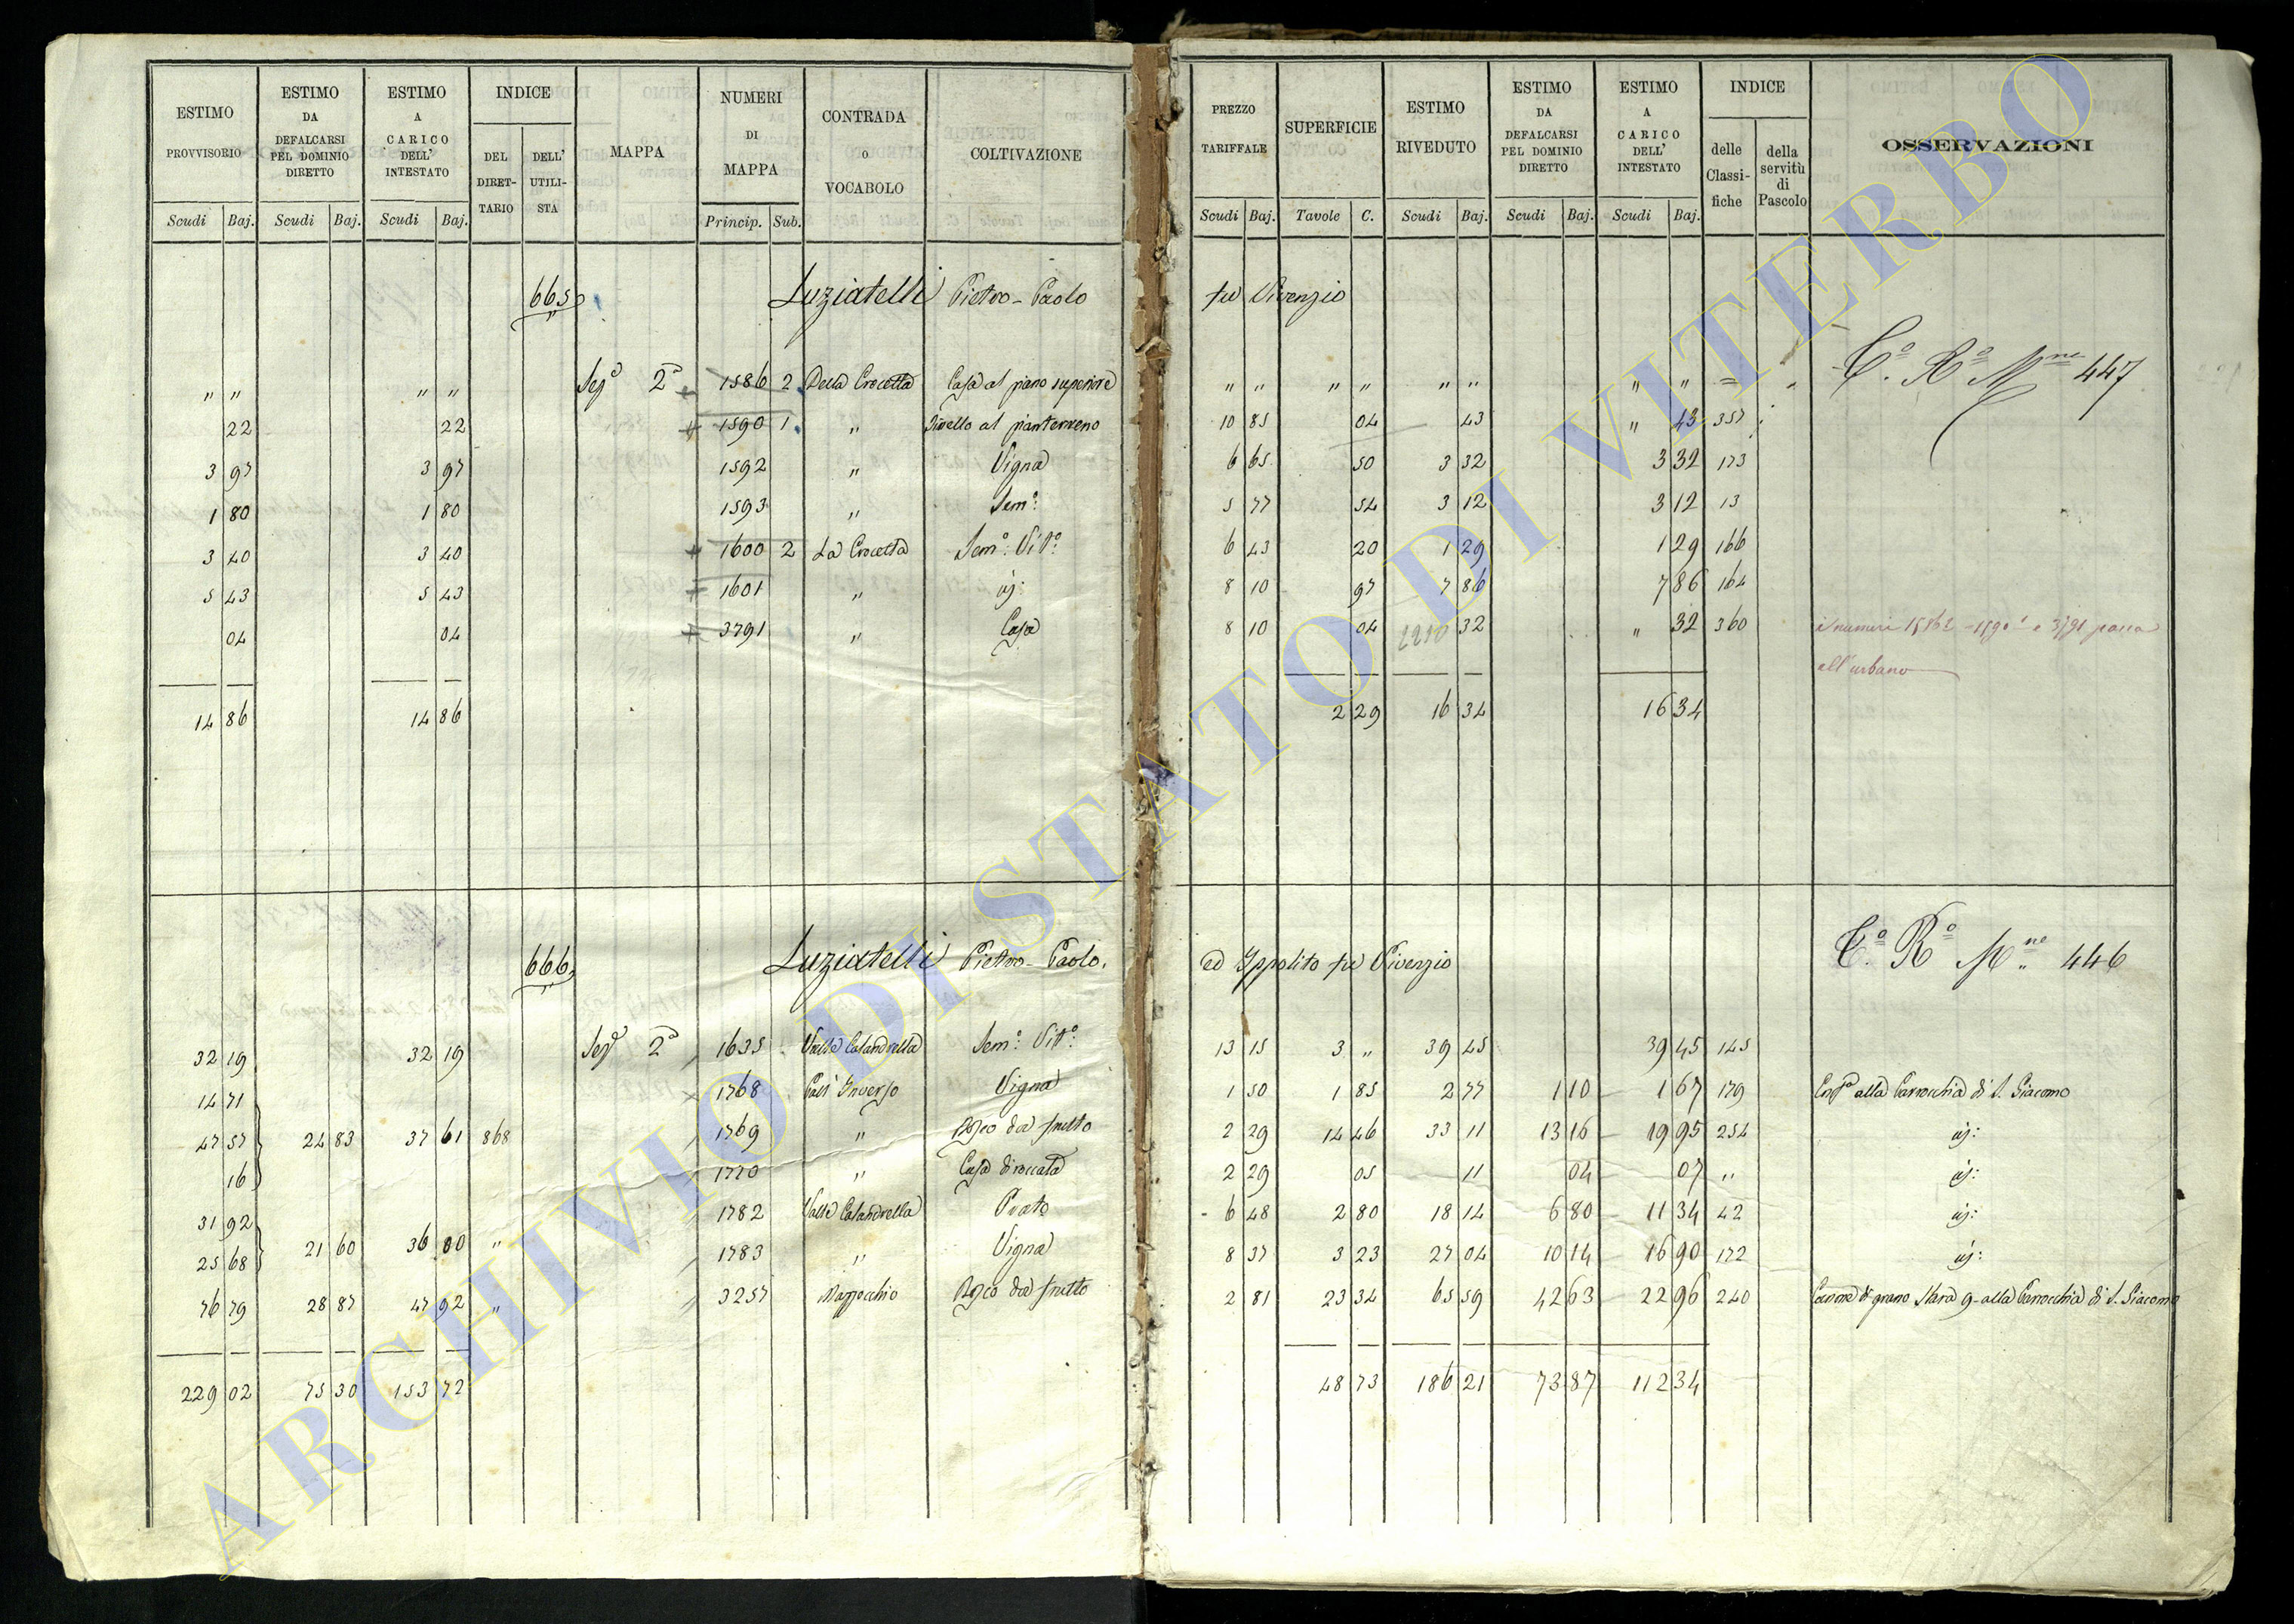 ESTIMO PROVVISORIO
ESTIMO DA DEFALCARSI PEL DOMINIO DIRETTO
ESTIMO A CARICO DELL' INTESTATO
INDICE
DEL DIRET- TARIO
DELL' UTILI- STA
MAPPA
NUMERI DI MAPPA
CONTRADA O VOCABOLO
COLTIVAZIONE
PREZZO TARIFFALE
SUPERFICIE
ESTIMO RIVEDUTO
ESTIMO DA DEFALCARSI PEL DOMINIO DIRETTO
ESTIMO A CARICO DELL' INTESTATO
INDICE
delle Classi- fiche
della servitù di Pascolo
OSSERVAZIONI
Scudi Baj. Scudi Baj. Scudi Baj. Princip. Sub. Scudi Baj. Tavole C. Scudi Baj. Scudi Baj. Scudi Baj.
665 Luziatelli Pietro-Paolo fu Vivenzio
C.º Rº Mne 447
" " " " Segª 2ª 1586 2 Della Crocetta Casa al piano superiore " " " " " " " " =
22 22 1590 1 " Tinello al pianterreno 10 85 04 43 " 43 357
3 97 3 97 1592 " Vigna 6 65 50 3 32 3 32 173
1 80 1 80 1593 " Semº: 5 77 54 3 12 3 12 13
3 40 3 40 1600 2 La Crocetta Semº: Vitº: 6 43 20 1 29 1 29 166
5 43 5 43 1601 " iд: 8 10 97 7 86 7 86 164
04 04 3791 " Casa 8 10 04 32 " 32 360 i numeri 1586 2 - 1590 1 e 3791 passa
all'urbano
14 86 14 86 2 29 16 34 16 34
666 Luziatelli Pietro-Paolo, ed Ippolito fu Vivenzio
C.º Rº Mne 446
32 19 32 19 Segª 2ª 1635 Valle Calandrella Semº: Vitº: 13 15 3 " 39 45 39 45 145
14 71 1768 Inverso Vigna 1 50 1 85 2 77 1 10 1 67 179 alla Parrocchia di S. Giacomo
47 57 24 83 37 61 868 1769 " Bosco da frutto 2 29 14 46 33 11 13 16 19 95 254 id:
16 1770 " Casa diroccata 2 29 05 11 04 07 " id:
31 92 1782 Valle Calandrella Prato 6 48 2 80 18 14 6 80 11 34 42 id:
25 68 21 60 36 00 " 1783 " Vigna 8 37 3 23 27 04 10 14 16 90 172 id:
76 79 28 87 47 92 " 3257 Mazzocchio Bosco da frutto 2 81 23 34 65 59 42 63 22 96 240 Canone di grano Stara 9 - alla Parrocchia di S. Giacomo
229 02 75 30 153 72 48 73 186 21 73 87 112 34
ARCHIVIO DI STATO DI VITERBO